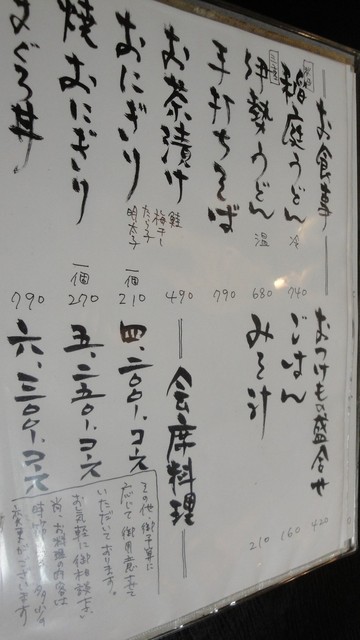 お食事
秋田 稲庭うどん 冷 740
三重 伊勢うどん 温 680
手打ちそば 790
お茶漬け 鮭 梅干し たらこ 明太子 490
おにぎり 一個 210
焼おにぎり 一個 270
まぐろ丼 790
おつけもの盛合せ 420
ごはん 160
みそ汁 210
会席料理
四、二〇〇、コース
五、二五〇、コース
六、三〇〇、コース
その他 御予算に
応じて御用意させて
いただいております。
お気軽に御相談下さい
尚、お料理の内容は
変更がございます